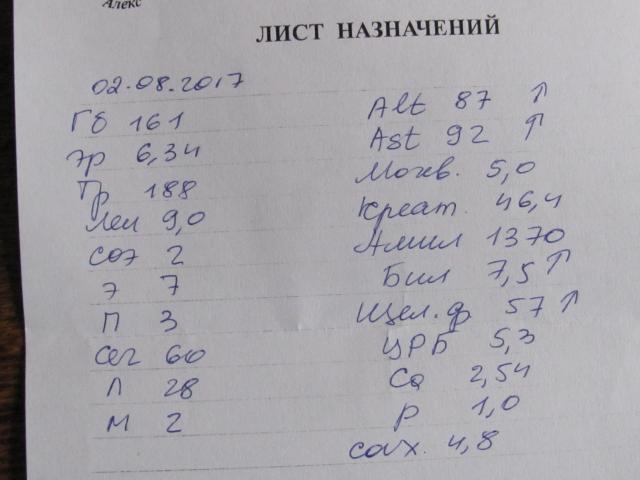 Алекс
ЛИСТ НАЗНАЧЕНИЙ
02.08.2017
Гб 161
Эр 6,34
Тр 188
Лей 9,0
СОЭ 2
Э 7
П 3
Сег 60
Л 28
М 2
Alt 87 ↑
Ast 92 ↑
Мочев. 5,0
Креат. 46,4
Амил 1370
Бил 7,5 ↑
Щел. ф 57 ↑
ЦРБ 5,3
Ca 2,54
P 1,0
сах. 4,8